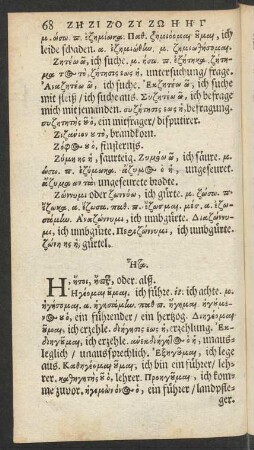 68 ΖΗ ΖΙ ΖΟ ΖΥ ΖΩ Η ΗΓ
μ. ώσω. π. ἐζημίωκα. Παθ. ζημιόομαι οῦμαι, ich
leide schaden. α. ἐζημιώθην. μ. ζημιωθήσομαι.
Ζητέω ῶ, ich suche. μ. ήσω. π. ἐζήτηκα. ζήτη-
μα τ⸱ τὸ. ζήτησις εως ἡ, untersuchung/ frage.
Ἀναζητέω ῶ, ich suche. Ἐκζητέω ῶ, ich suche
mit fleiß/ ich suche aus. Συζητέω ῶ, ich befrage
mich mit jemanden. συζήτησις εως ἡ, befragung.
συζητητὴς οῦ ὁ, ein mitfrager/ disputirer.
Ζιζάνιον ου τὸ, brandkorn.
Ζόφος ου ὁ, finsternis.
Ζύμη ης ἡ, saurteig. Ζυμόω ῶ, ich säure. μ.
ώσω. π. ἐζύμωκα. ἄζυμος ὁ ἡ, ungeseuret.
ἄζυμα ων τὰ. ungeseurete brodte.
Ζώννυμι oder ζωννύω, ich gürte. μ. ζώσω. π.
ἔζωκα. α. ἔζωσα. παθ. π. ἔζωσμαι. μέσ. α. ἐζω-
σάμην. Ἀναζώννυμι, ich umbgürte. Διαζώννυ-
μι, ich umbgürte. Περιζώννυμι, ich umbgürte.
ζώνη ης ἡ, gürtel.
Ἦτα.
Η, ἤτοι, ἤπερ, oder. alß.
Ἡγέομαι οῦμαι, ich führe. it. ich achte. μ.
ἡγήσομαι. α. ἡγησάμην. παθ π. ἥγημαι. ἡγήμε-
νος ου ὁ, ein führender/ ein hertzog. Διηγέομαι
οῦμαι, ich erzehle. διήγησις εως ἡ, erzehlung. Ἐκ-
διηγοῦμαι, ich erzehle. ἀνεκδιήγητος ὁ ἡ, unauß-
leglich/ unaussprechlich. Ἐξηγοῦμαι, ich lege
aus. Καθηγέομαι οῦμαι, ich bin ein führer/ leh-
rer. καθηγητὴς οῦ ὁ, lehrer. Προηγοῦμαι, ich kom-
me zuvor. ἡγεμὼν όνος ὁ, ein führer/ landpfle-
ger.